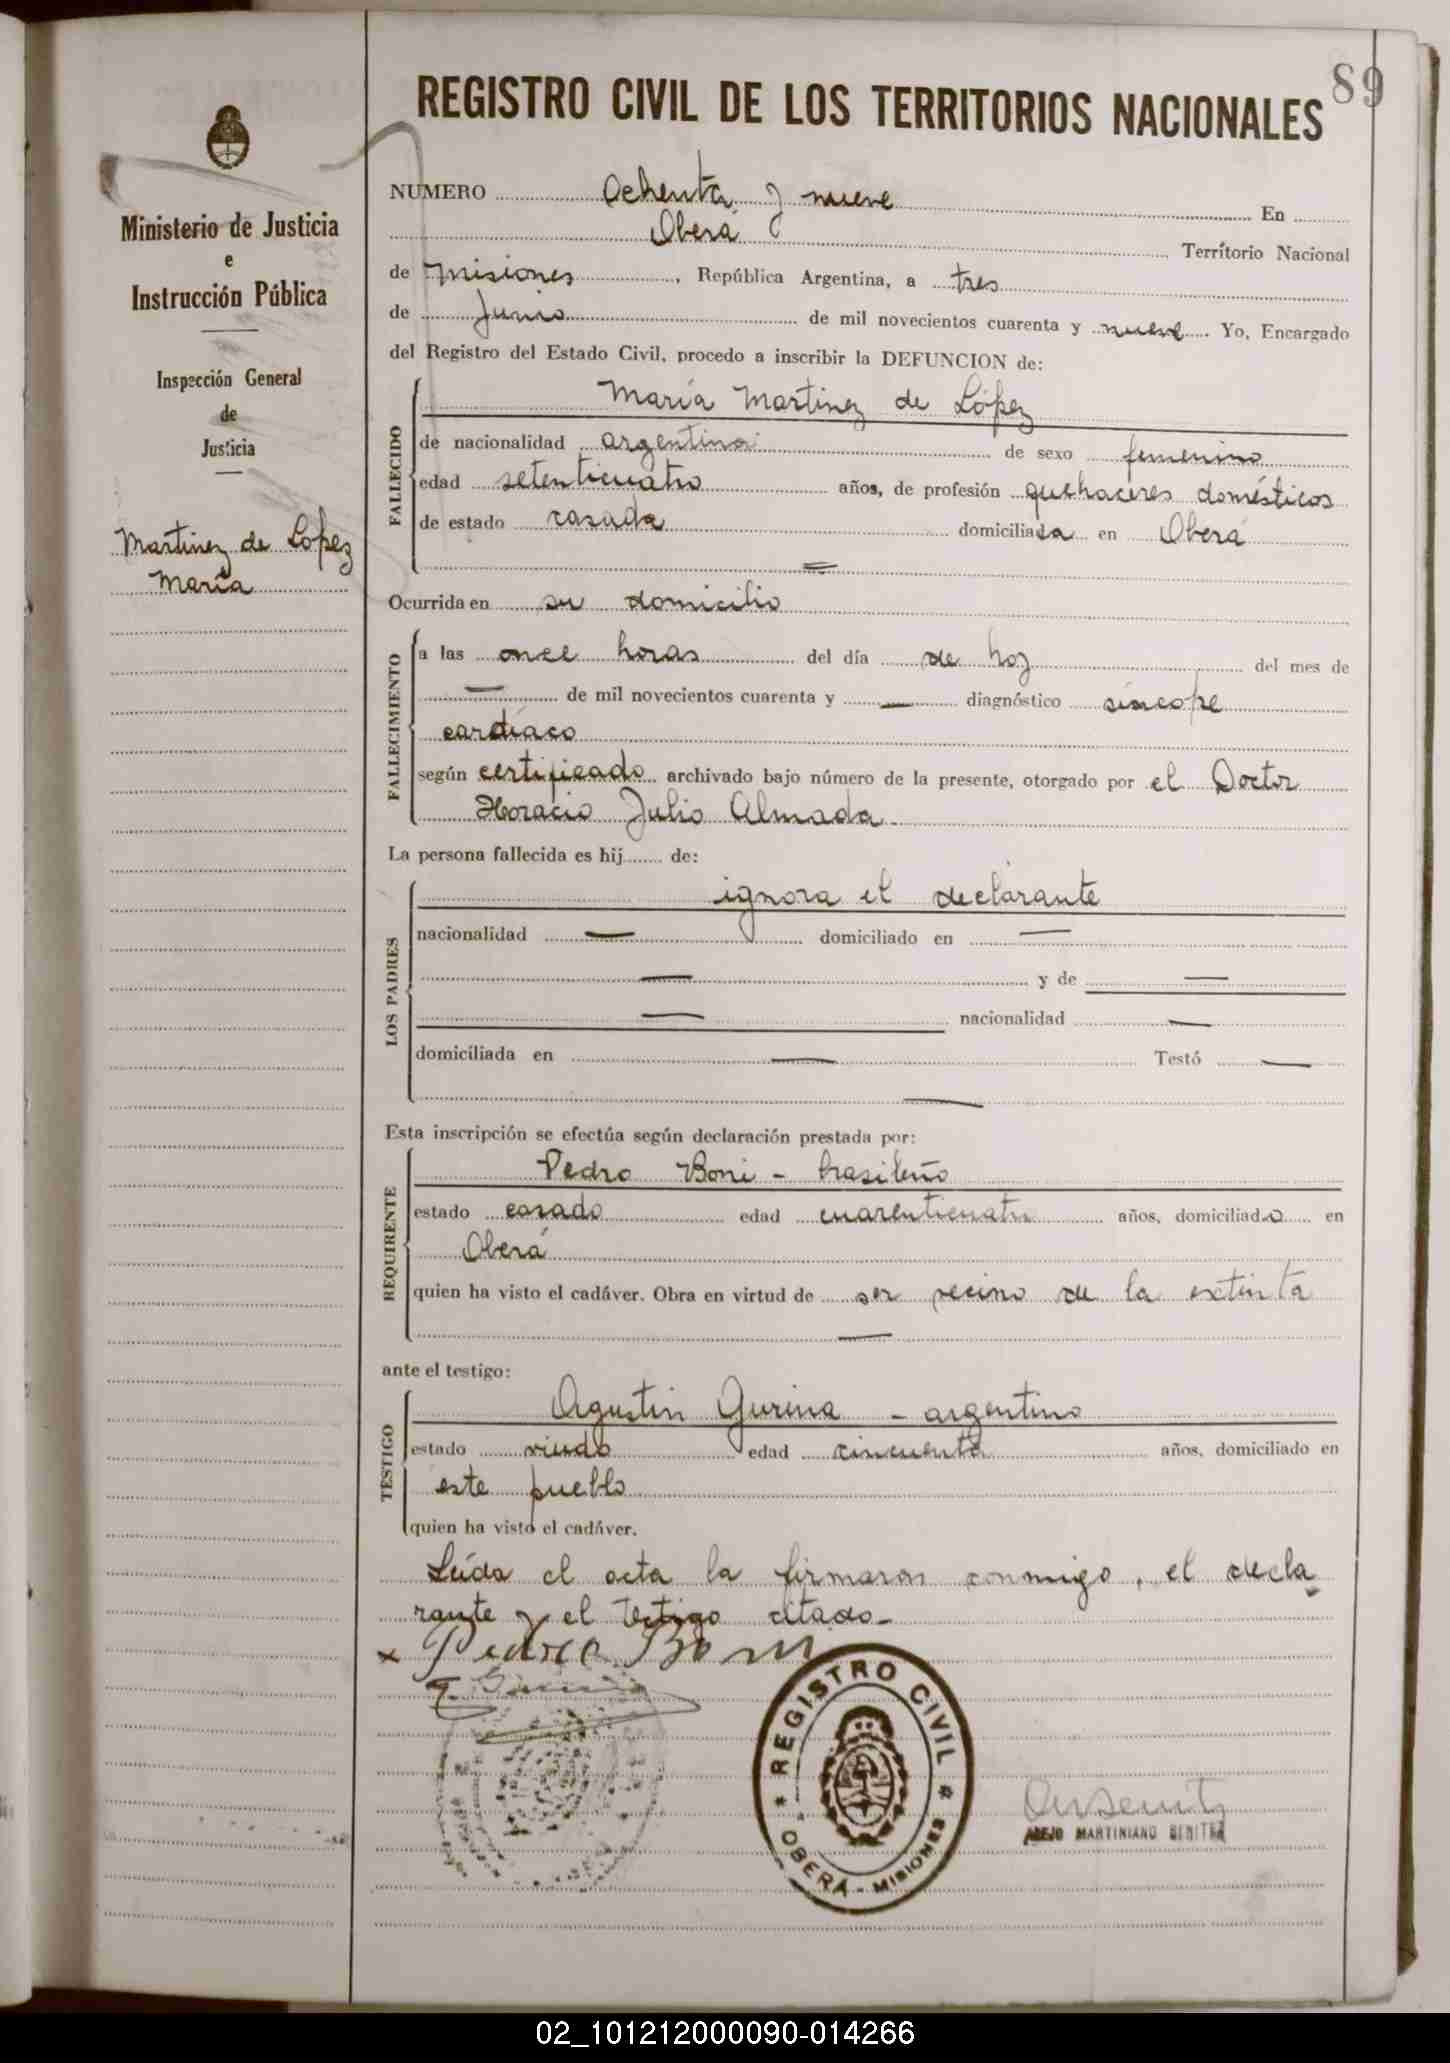 89
REGISTRO CIVIL DE LOS TERRITORIOS NACIONALES
Ministerio de Justicia
e
Instrucción Pública
Inspección General
de
Justicia
Martinez de López
María
NUMERO Ochenta y nueve En
Oberá Territorio Nacional
de Misiones, República Argentina, a tres
de Junio de mil novecientos cuarenta y nueve Yo, Encargado
del Registro del Estado Civil, procedo a inscribir la DEFUNCION de:
FALLECIDO
María Martinez de López
de nacionalidad argentina de sexo femenino
edad setenticuatro años, de profesión quehaceres domésticos
de estado casada domiciliada en Oberá
Ocurrida en su domicilio
FALLECIMIENTO
a las once horas del día de hoy del mes de
— de mil novecientos cuarenta y — diagnóstico síncope
cardíaco
según certificado archivado bajo número de la presente, otorgado por el Doctor
Horacio Julio Almada
La persona fallecida es hij........ de:
LOS PADRES
ignora el declarante
nacionalidad — domiciliado en —
— y de —
— nacionalidad —
domiciliada en — Testó —
—
Esta inscripción se efectúa según declaración prestada por:
REQUIRENTE
Pedro Boni - brasileño
estado casado edad cuarenticuatro años, domiciliado en
Oberá
quien ha visto el cadáver. Obra en virtud de ser vecino de la extinta
—
ante el testigo:
TESTIGO
Agustin Gurina - argentino
estado viudo edad cincuenta años, domiciliado en
este pueblo
quien ha visto el cadáver.
Leída el acta la firmaron conmigo, el decla
rante y el testigo citado-
x Pedro Boni
REGISTRO CIVIL
OBERÁ - MISIONES
ALEJO MARTINIANO BENITEZ
02_101212000090-014266